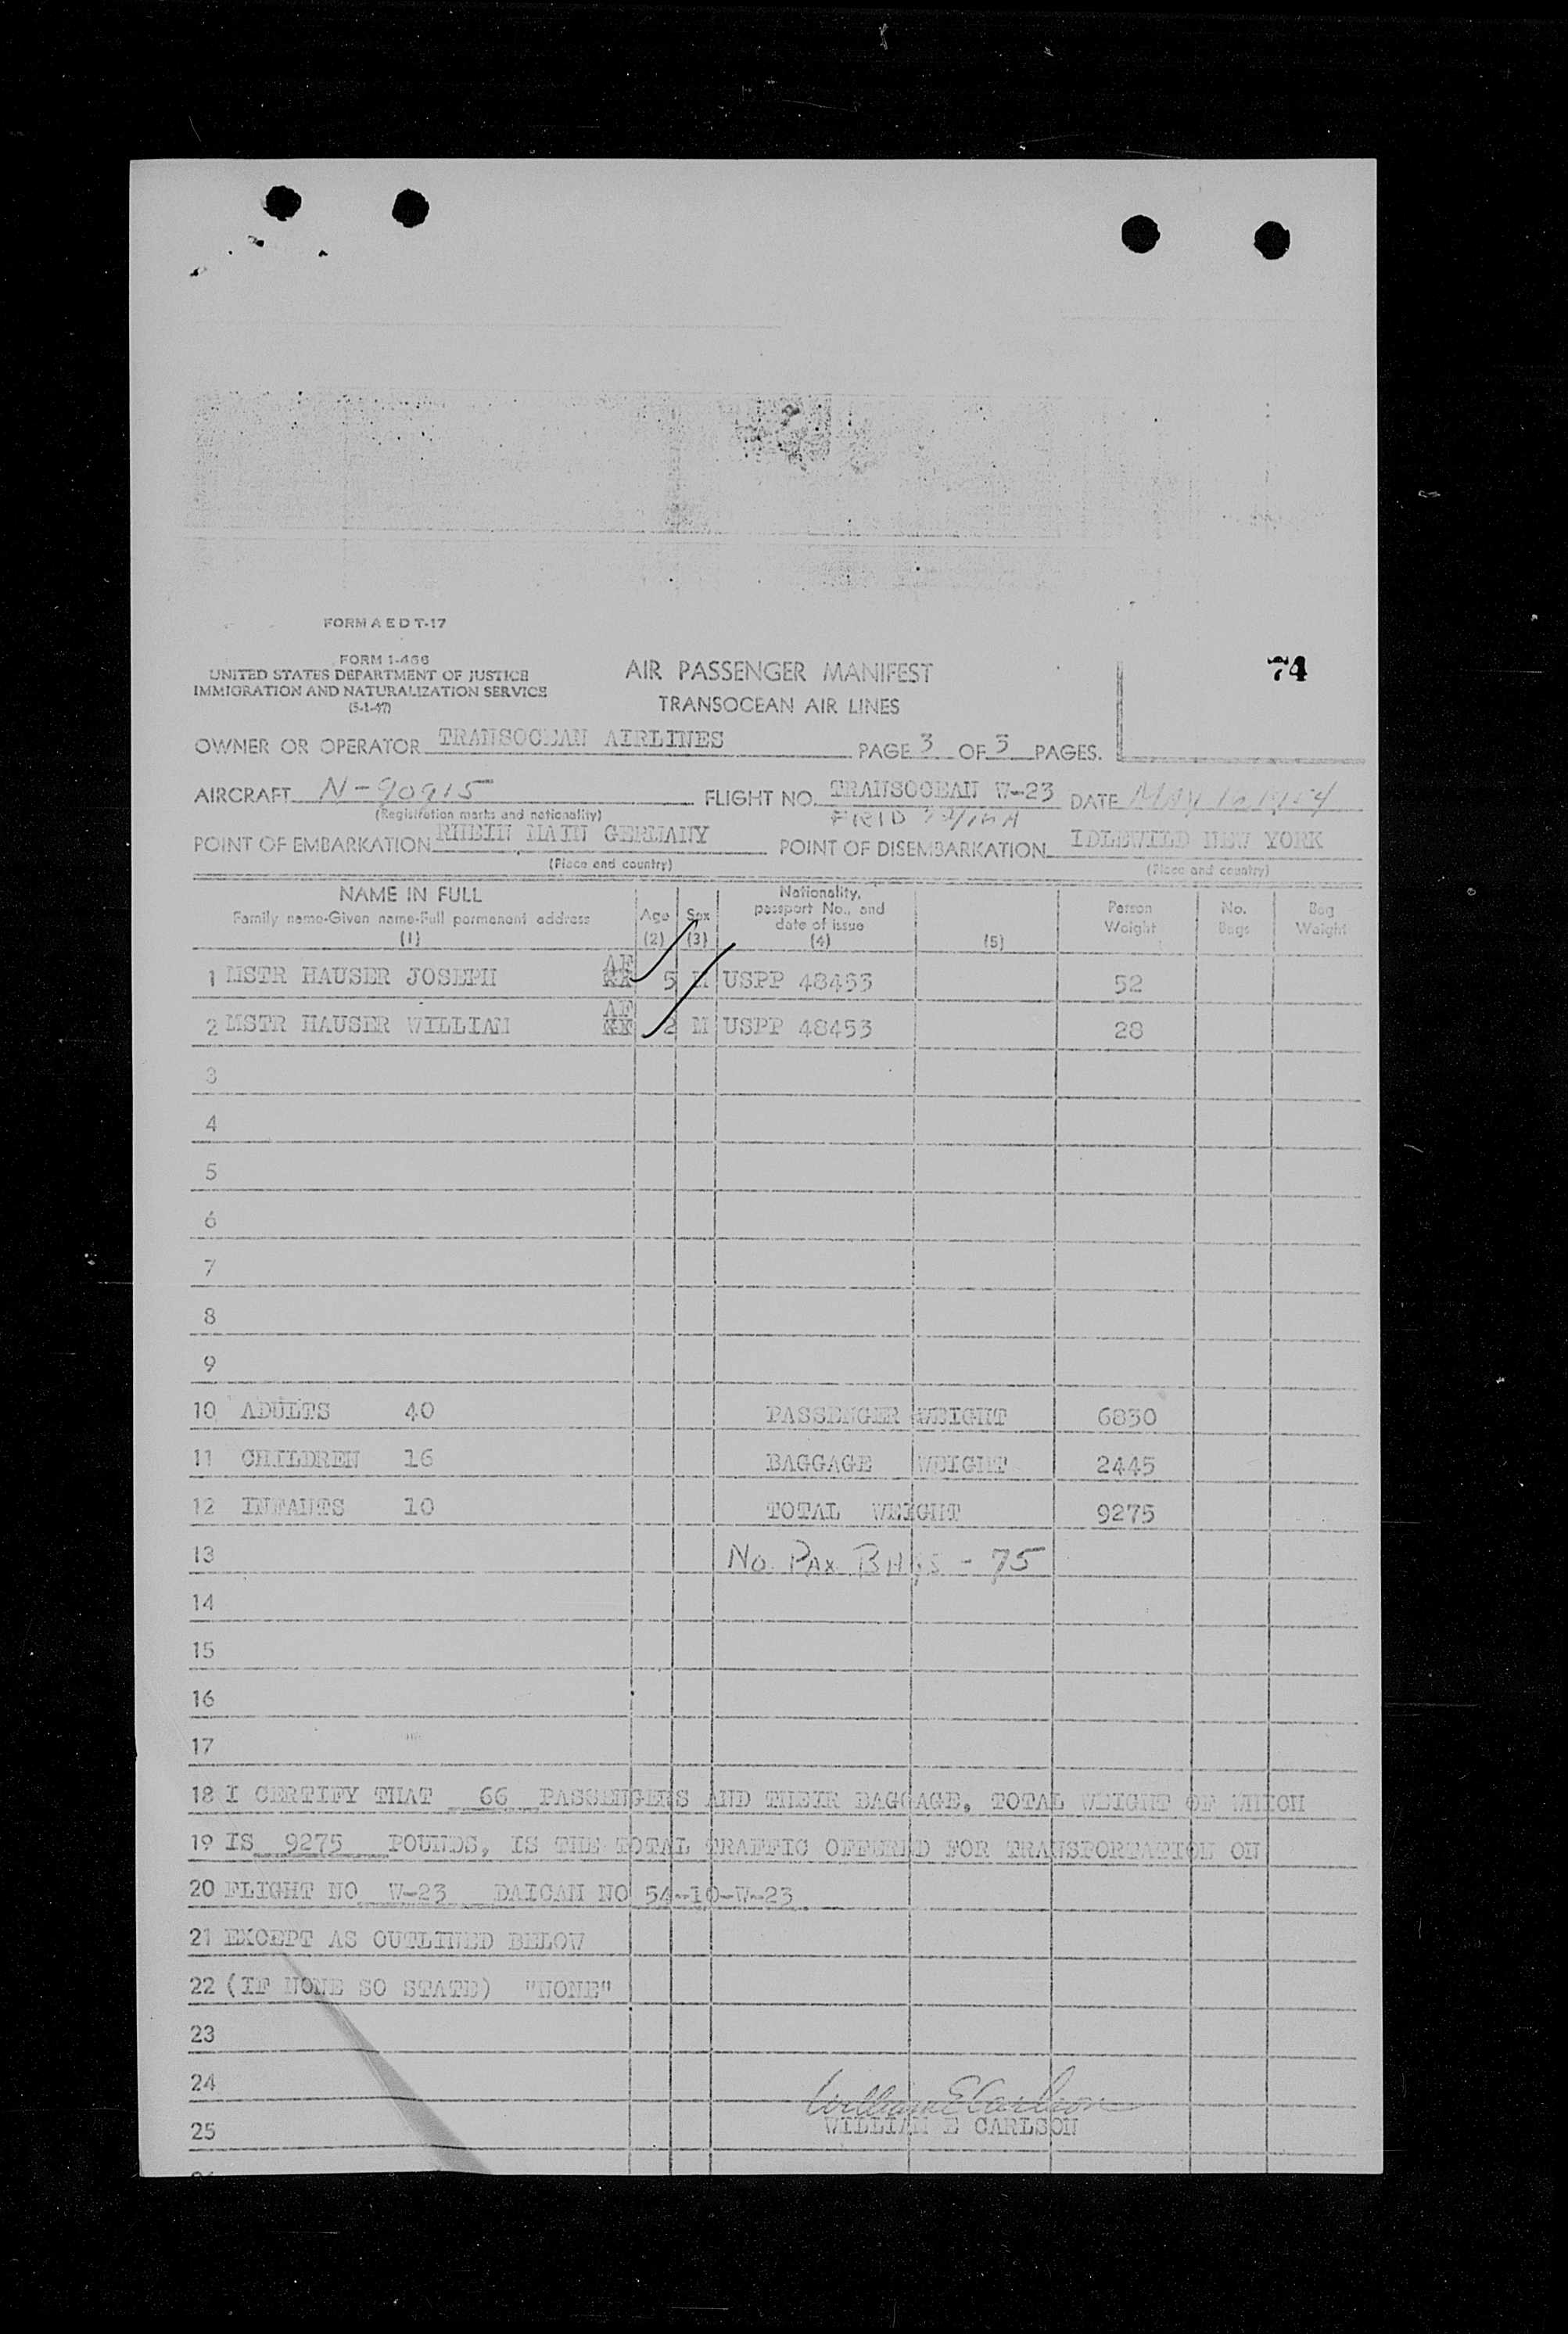 FORM A E D T-17
FORM I-466
UNITED STATES DEPARTMENT OF JUSTICE
IMMIGRATION AND NATURALIZATION SERVICE
(5-1-47)
AIR PASSENGER MANIFEST
TRANSOCEAN AIR LINES
74
OWNER OR OPERATOR TRANSOCEAN AIRLINES PAGE 3 OF 3 PAGES.
AIRCRAFT N-90915 FLIGHT NO. TRANSOCEAN W-23 DATE MAY 1954
(Registration marks and nationality)
POINT OF EMBARKATION RHEIN MAIN GERMANY POINT OF DISEMBARKATION IDLEWILD NEW YORK
(Place and country) (Place and country)
NAME IN FULL
Family name-Given name-Full permanent address
(1)
Age
(2)
Sex
(3)
Nationality,
passport No., and
date of issue
(4)
(5)
Person
Weight
No.
Bags
Bag
Weight
1 MSTR HAUSER JOSEPH AF 5 M USPP 48453 52
2 MSTR HAUSER WILLIAM AF 2 M USPP 48453 28
3
4
5
6
7
8
9
10 ADULTS 40 PASSENGER WEIGHT 6830
11 CHILDREN 16 BAGGAGE WEIGHT 2445
12 INFANTS 10 TOTAL WEIGHT 9275
13 No. PAX BAGS - 75
14
15
16
17
18 I CERTIFY THAT 66 PASSENGERS AND THEIR BAGGAGE, TOTAL WEIGHT OF WHICH
19 IS 9275 POUNDS, IS THE TOTAL TRAFFIC OFFERED FOR TRANSPORTATION ON
20 FLIGHT NO W-23 DAICAM NO 54-10-W-23
21 EXCEPT AS OUTLINED BELOW
22 (IF NONE SO STATE) "NONE"
23
24 William E Carlson
25 WILLIAM E CARLSON